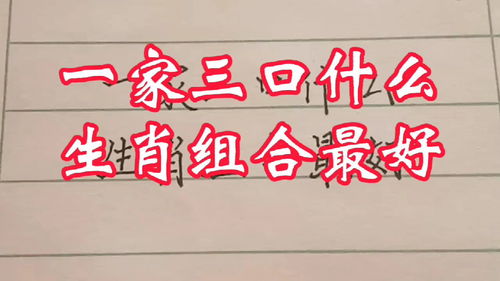 一家三口什么
生肖组合最好